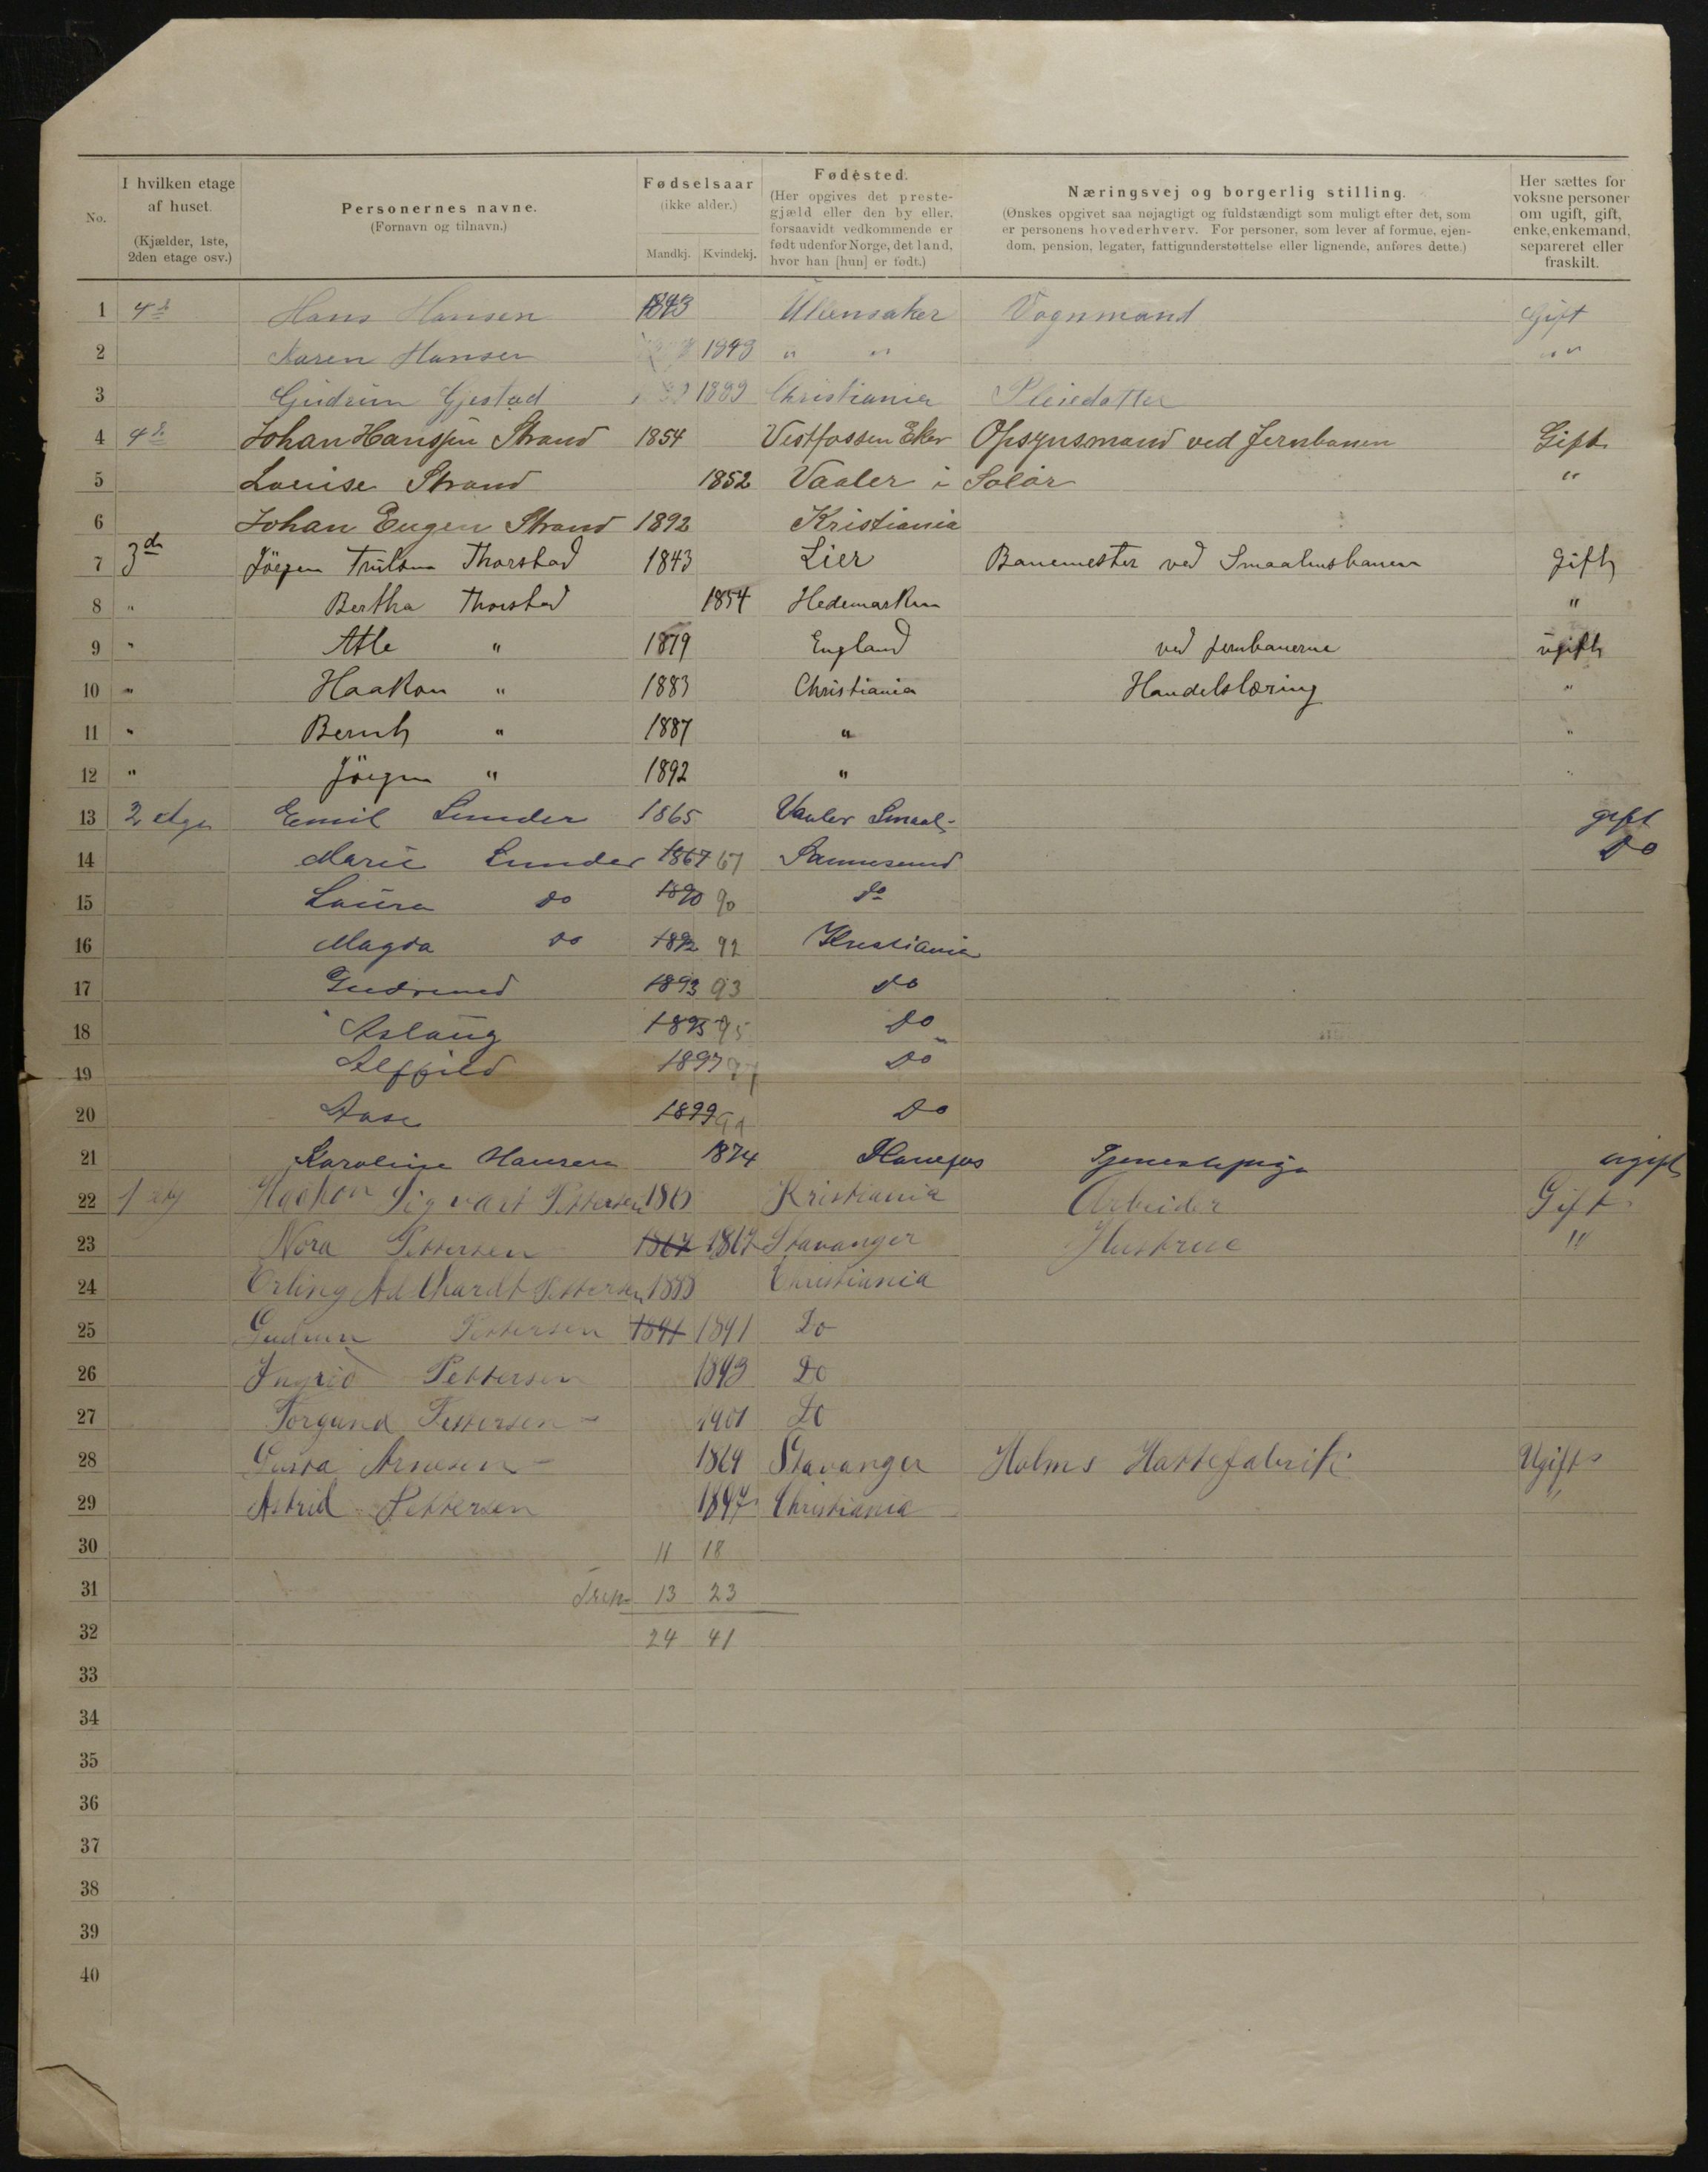 No. I hvilken etage af huset. (Kjælder, 1ste, 2den etage osv.) Personernes navne. (Fornavn og tilnavn.) Fødselsaar (ikke alder.) Mandkj. Kvindekj. Fødested. (Her opgives det prestegjæld eller den by eller, forsaavidt vedkommende er født udenfor Norge, det land, hvor han [hun] er født.) Næringsvej og borgerlig stilling. (Ønskes opgivet saa nøjagtigt og fuldstændigt som muligt efter det, som er personens hovederhverv. For personer, som lever af formue, ejendom, pension, legater, fattigunderstøttelse eller lignende, anføres dette.) Her sættes for voksne personer om ugift, gift, enke, enkemand, separeret eller fraskilt.
1 4de Hans Hansen 1843 Ullensaker Vognmand Gift
2 Karen Hansen 1843 " " " "
3 Gudrun Gjestad 1899 Christiania Pleiedatter
4 4de Johan Hansen Strand 1854 Vestfossen Eker Opsynsmand ved Jernbanen Gift
5 Louise Strand 1852 Vaaler i Solør "
6 Johan Eugen Strand 1892 Kristiania
7 3de Jörgen Trulsen Thorstad 1843 Lier Banemester ved Smaalensbanen Gift
8 " Bertha Thorstad 1854 Hedemarken "
9 " Atle " 1879 England ved jernbanerne ugift
10 " Haakon " 1883 Christiania Handelslæring "
11 " Bernh " 1887 " "
12 " Jörgen " 1892 " "
13 2 etge Emil Lunder 1865 Vaaler Smaal- gift
14 Marie Lunder 1867 67 Sannesund Do
15 Laura do 1890 90 do
16 Magda do 1892 92 Kristiania
17 1893 93 do
18 Aslaug 1895 95 Do
19 Alfhild 1897 97 Do
20 Aase 1899 99 Do
21 Karoline Hansen 1874 Hønefos Tjenestepige ugift
22 1 etg Haakon Sigvart Pettersen 1865 Kristiania Arbeider Gift
23 Nora Pettersen 1867 1867 Stavanger Hustrue "
24 Erling Pettersen 1888 Christiania
25 Gudrun Pettersen 1891 1891 Do
26 Ingrid Pettersen 1893 Do
27 Torgund Pettersen 1901 Do
28 Gusta Arnesen 1869 Stavanger Holms Hattefabrik Ugift
29 Astrid Pettersen 1897 Christiania "
30 11 18
31 Tren 13 23
32 24 41
33
34
35
36
37
38
39
40